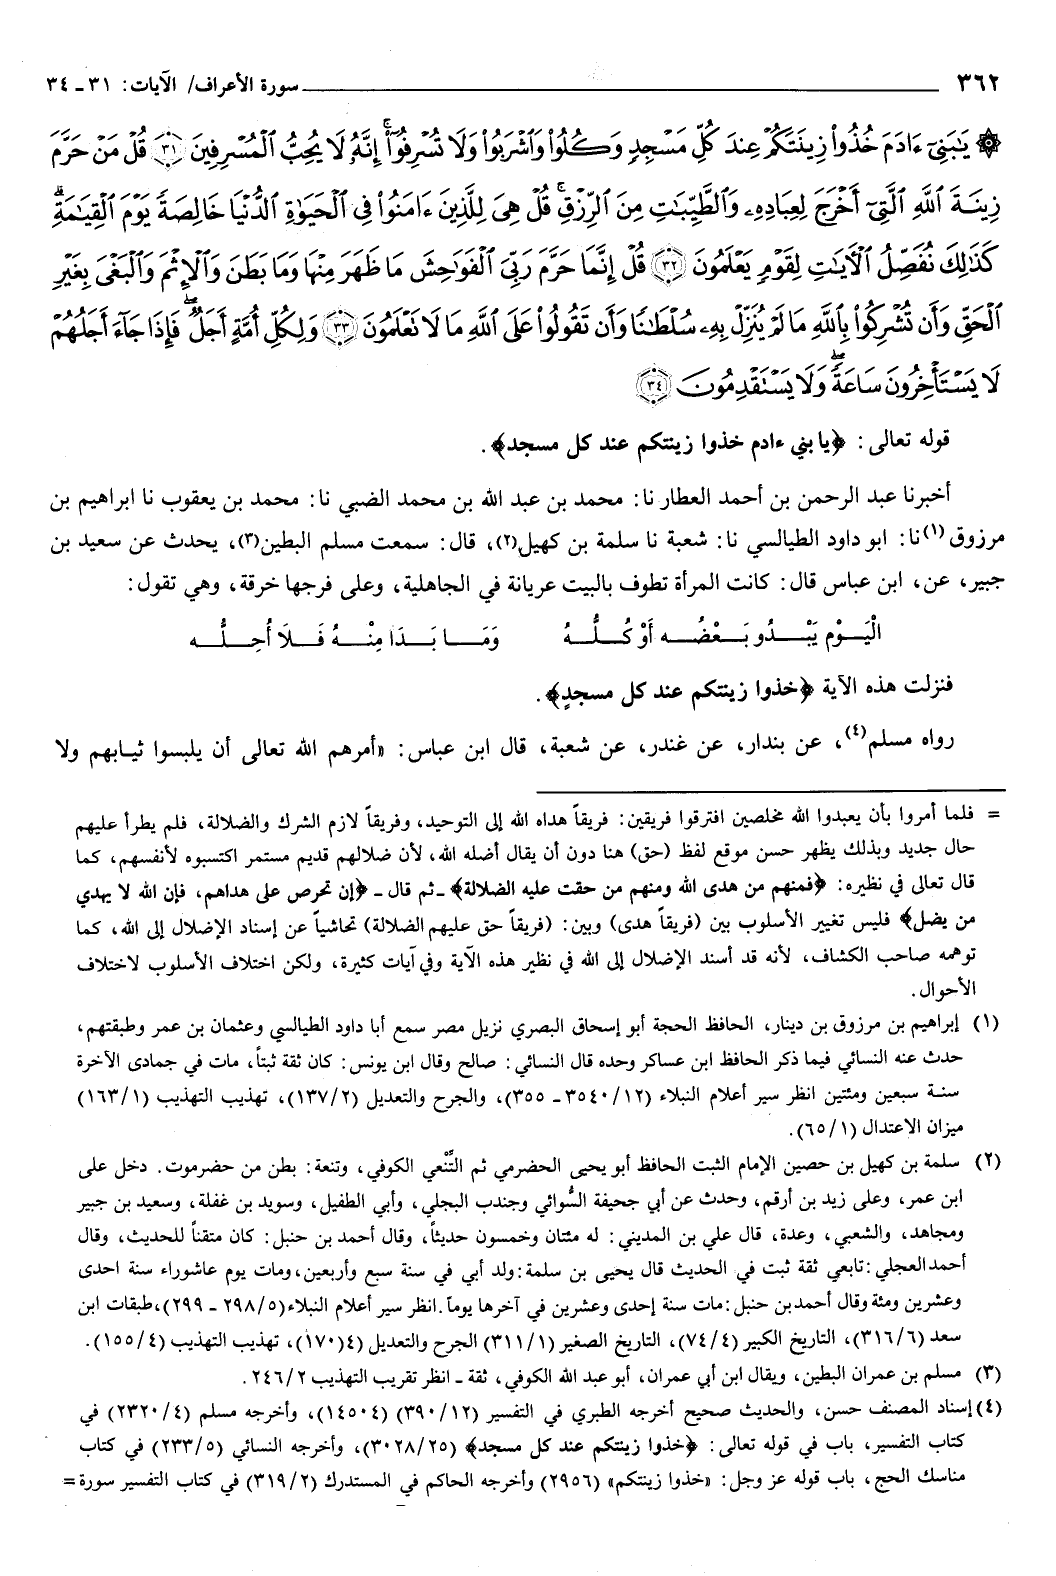 ٣٦٢ سورة الأعراف/ الآيات: ٣١ ـ ٣٤
۞ يَٰبَنِىٓ ءَادَمَ خُذُوا۟ زِينَتَكُمْ عِندَ كُلِّ مَسْجِدٍ وَكُلُوا۟ وَٱشْرَبُوا۟ وَلَا تُسْرِفُوٓا۟ ۚ إِنَّهُۥ لَا يُحِبُّ ٱلْمُسْرِفِينَ ﴿٣١﴾ قُلْ مَنْ حَرَّمَ
زِينَةَ ٱللَّهِ ٱلَّتِىٓ أَخْرَجَ لِعِبَادِهِۦ وَٱلطَّيِّبَٰتِ مِنَ ٱلرِّزْقِ ۚ قُلْ هِىَ لِلَّذِينَ ءَامَنُوا۟ فِى ٱلْحَيَوٰةِ ٱلدُّنْيَا خَالِصَةً يَوْمَ ٱلْقِيَٰمَةِ ۗ
كَذَٰلِكَ نُفَصِّلُ ٱلْءَايَٰتِ لِقَوْمٍ يَعْلَمُونَ ﴿٣٢﴾ قُلْ إِنَّمَا حَرَّمَ رَبِّىَ ٱلْفَوَٰحِشَ مَا ظَهَرَ مِنْهَا وَمَا بَطَنَ وَٱلْإِثْمَ وَٱلْبَغْىَ بِغَيْرِ
ٱلْحَقِّ وَأَن تُشْرِكُوا۟ بِٱللَّهِ مَا لَمْ يُنَزِّلْ بِهِۦ سُلْطَٰنًا وَأَن تَقُولُوا۟ عَلَى ٱللَّهِ مَا لَا تَعْلَمُونَ ﴿٣٣﴾ وَلِكُلِّ أُمَّةٍ أَجَلٌ ۖ فَإِذَا جَآءَ أَجَلُهُمْ
لَا يَسْتَأْخِرُونَ سَاعَةً ۖ وَلَا يَسْتَقْدِمُونَ ﴿٣٤﴾
قوله تعالى: ﴿يا بني ءادم خذوا زينتكم عند كل مسجد﴾.
أخبرنا عبد الرحمن بن أحمد العطار نا: محمد بن عبد الله بن محمد الضبي نا: محمد بن يعقوب نا ابراهيم بن
مرزوق(١) نا: ابو داود الطيالسي نا: شعبة نا سلمة بن كهيل(٢)، قال: سمعت مسلم البطين(٣)، يحدث عن سعيد بن
جبير، عن، ابن عباس قال: كانت المرأة تطوف بالبيت عريانة في الجاهلية، وعلى فرجها خرقة، وهي تقول:
الْيَوْمَ يَبْدُو بَعْضُه أَوْ كُلُّهُ وَمَا بَدَا مِنْهُ فَلاَ أُحِلُّه
فنزلت هذه الآية ﴿خذوا زينتكم عند كل مسجدٍ﴾.
رواه مسلم(٤)، عن بندار، عن غندر، عن شعبة، قال ابن عباس: «أمرهم الله تعالى أن يلبسوا ثيابهم ولا
= فلما أمروا بأن يعبدوا الله مخلصين افترقوا فريقين: فريقاً هداه الله إلى التوحيد، وفريقاً لازم الشرك والضلالة، فلم يطرأ عليهم
حال جديد وبذلك يظهر حسن موقع لفظ (حق) هنا دون أن يقال أضله الله، لأن ضلالهم قديم مستمر اكتسبوه لأنفسهم، كما
قال تعالى في نظيره: ﴿فمنهم من هدى الله ومنهم من حقت عليه الضلالة﴾ ـ ثم قال ـ ﴿إن تحرص على هداهم، فإن الله لا يهدي
من يضل﴾ فليس تغيير الأسلوب بين (فريقاً هدى) وبين: (فريقاً حق عليهم الضلالة) تحاشياً عن إسناد الإضلال إلى الله، كما
توهمه صاحب الكشاف، لأنه قد أسند الإضلال إلى الله في نظير هذه الآية وفي آيات كثيرة، ولكن اختلاف الأسلوب لاختلاف
الأحوال.
(١) إبراهيم بن مرزوق بن دينار، الحافظ الحجة أبو إسحاق البصري نزيل مصر سمع أبا داود الطيالسي وعثمان بن عمر وطبقتهم،
حدث عنه النسائي فيما ذكر الحافظ ابن عساكر وحده قال النسائي: صالح وقال ابن يونس: كان ثقة ثبتاً، مات في جمادى الآخرة
سنة سبعين ومئتين انظر سير أعلام النبلاء (٣٥٤٠/١٢ ـ ٣٥٥)، والجرح والتعديل (١٣٧/٢)، تهذيب التهذيب (١٦٣/١)
ميزان الاعتدال (٦٥/١).
(٢) سلمة بن كهيل بن حصين الإمام الثبت الحافظ أبو يحيى الحضرمي ثم التِّنْعي الكوفي، وتنعة: بطن من حضرموت. دخل على
ابن عمر، وعلى زيد بن أرقم، وحدث عن أبي جحيفة السُّوائي وجندب البجلي، وأبي الطفيل، وسويد بن غفلة، وسعيد بن جبير
ومجاهد، والشعبي، وعدة، قال علي بن المديني: له مئتان وخمسون حديثاً، وقال أحمد بن حنبل: كان متقناً للحديث، وقال
أحمد العجلي: تابعي ثقة ثبت في الحديث قال يحيى بن سلمة: ولد أبي في سنة سبع وأربعين، ومات يوم عاشوراء سنة احدى
وعشرين ومئة وقال أحمد بن حنبل: مات سنة إحدى وعشرين في آخرها يوماً. انظر سير أعلام النبلاء (٢٩٨/٥ ـ ٢٩٩)، طبقات ابن
سعد (٣١٦/٦)، التاريخ الكبير (٧٤/٤)، التاريخ الصغير (٣١١/١) الجرح والتعديل (٤(١٧٠)، تهذيب التهذيب (١٥٥/٤).
(٣) مسلم بن عمران البطين، ويقال ابن أبي عمران، أبو عبد الله الكوفي، ثقة ـ انظر تقريب التهذيب ٢٤٦/٢.
(٤) إسناد المصنف حسن، والحديث صحيح أخرجه الطبري في التفسير (٣٩٠/١٢) (١٤٥٠٤)، وأخرجه مسلم (٢٣٢٠/٤) في
كتاب التفسير، باب في قوله تعالى: ﴿خذوا زينتكم عند كل مسجد﴾ (٣٠٢٨/٢٥)، وأخرجه النسائي (٢٣٣/٥) في كتاب
مناسك الحج، باب قوله عز وجل: «خذوا زينتكم» (٢٩٥٦) وأخرجه الحاكم في المستدرك (٣١٩/٢) في كتاب التفسير سورة =